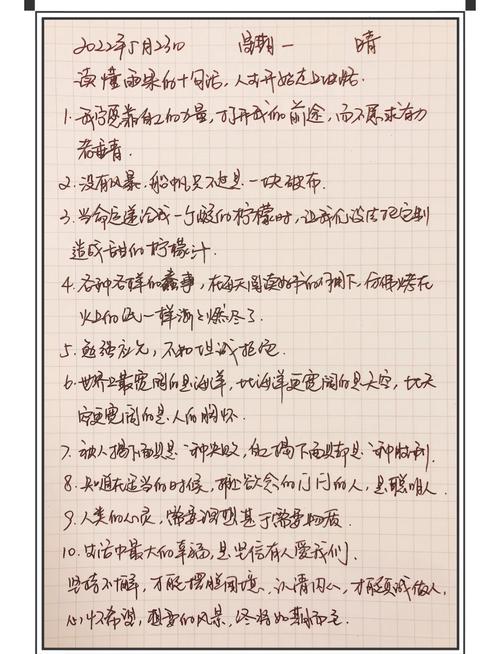 2022年5月23日 星期一 晴
读懂雨果的十句话，人才开始走上坡路.
1. 我宁愿靠自己的力量，打开我的前途，而不愿求有力
者垂青.
2. 没有风暴，船帆只不过是一块破布.
3. 当命运递给我一个酸的柠檬时，让我们设法把它制
造成甜的柠檬汁.
4. 各种各样的蠢事，在每天阅读好书的影响下，仿佛烤在
火上的纸一样渐渐燃尽了.
5. 勉强应允，不如坦诚拒绝.
6. 世界上最宽阔的是海洋，比海洋更宽阔的是天空，比天
空更宽阔的是人的胸怀.
7. 被人揭下面具是一种失败，自己揭下面具却是一种胜利.
8. 知道在适当的时候，欲念的门的人，是聪明人.
9. 人类的心灵，需要理想甚于需要物质.
10. 生活中最大的幸福，是坚信有人爱我们.
不解，才能摆脱困境，内心，才能做人，
心怀希望，想要的风景，终将如期而至.